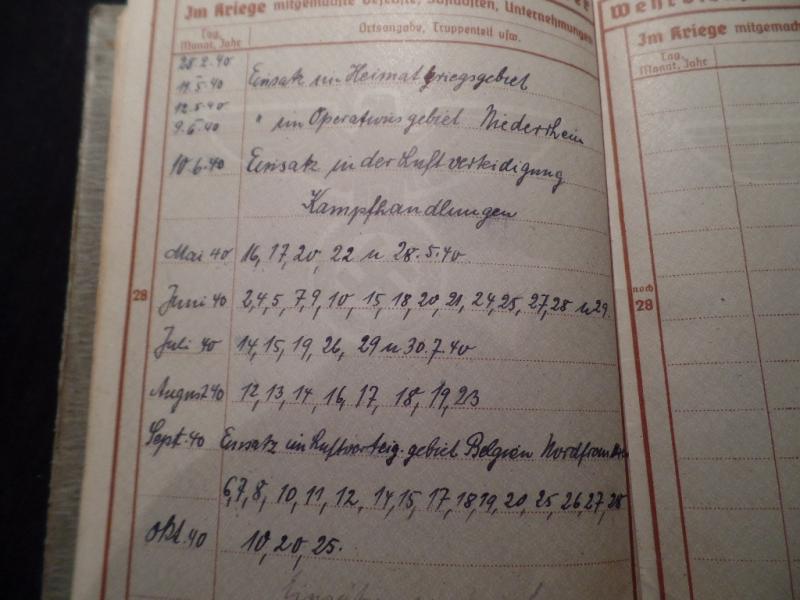 Im Kriege mitgemachte Gefechte, Schlachten, Unternehmungen
Tag, Monat, Jahr
Ortsangabe, Truppenteil usw.
28.2.40
11.5.40 Einsatz im Heimatkriegsgebiet
12.5.40
9.6.40 " im Operationsgebiet Niederrhein
10.6.40 Einsatz in der Luftverteidigung
Kampfhandlungen
Mai 40 16, 17, 20, 22 u 28.5.40
28
Juni 40 2, 4, 5, 7, 9, 10, 15, 18, 20, 21, 24, 25, 27, 28 u 29.
Juli 40 14, 15, 19, 26, 29 u 30.7.40
August 40 12, 13, 14, 16, 17, 18, 19, 23
Sept. 40 Einsatz im Luftverteig. gebiet Belgien Nordfrankr.
6, 7, 8, 10, 11, 12, 14, 15, 17, 18, 19, 20, 25, 26, 27, 28
Okt. 40 10, 20, 25.
Im Kriege mitgemach
Tag, Monat, Jahr
noch
28